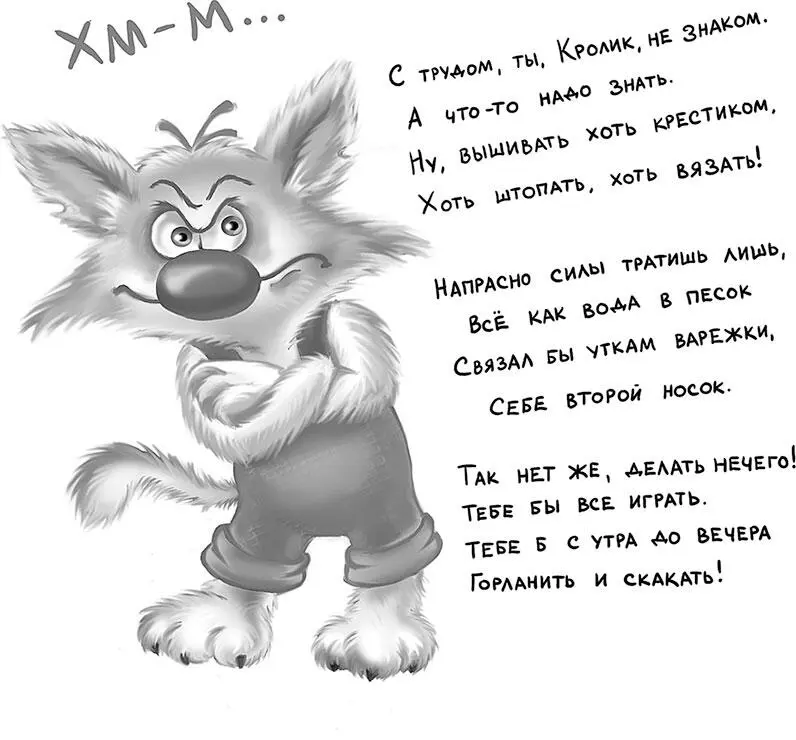 ХМ-М...
С трудом, ты, Кролик, не знаком.
А что-то надо знать.
Ну, вышивать хоть крестиком,
Хоть штопать, хоть вязать!
Напрасно силы тратишь лишь,
Всё как вода в песок
Связал бы уткам варежки,
Себе второй носок.
Так нет же, делать нечего!
Тебе бы все играть.
Тебе б с утра до вечера
Горланить и скакать!